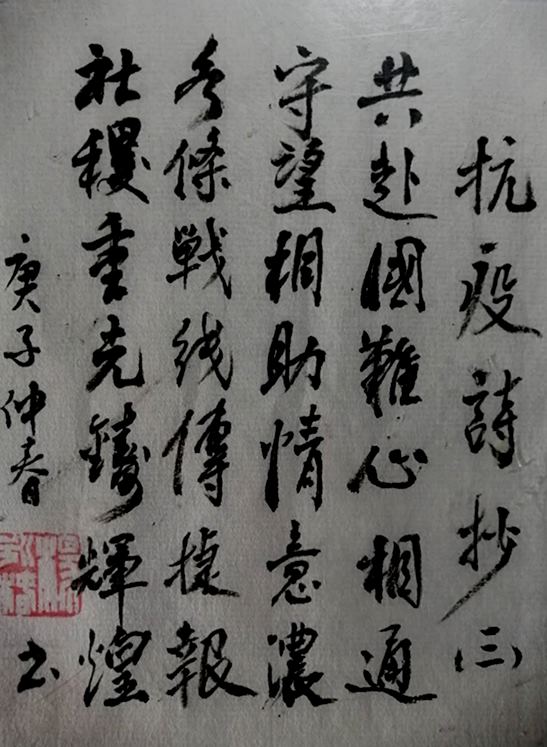 抗疫詩抄(三)
共赴國難心相通
守望相助情意濃
各條戦线傳捷報
社稷重光鑄輝煌
庚子仲春
书